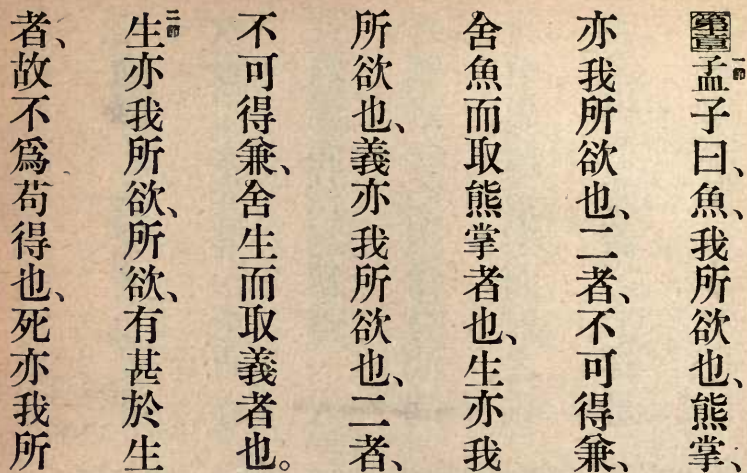 第章一節孟子曰、魚、我所欲也、熊掌、
亦我所欲也、二者、不可得兼、
舍魚而取熊掌者也、生亦我
所欲也、義亦我所欲也、二者、
不可得兼、舍生而取義者也。
二節生亦我所欲、所欲、有甚於生
者、故不爲苟得也、死亦我所